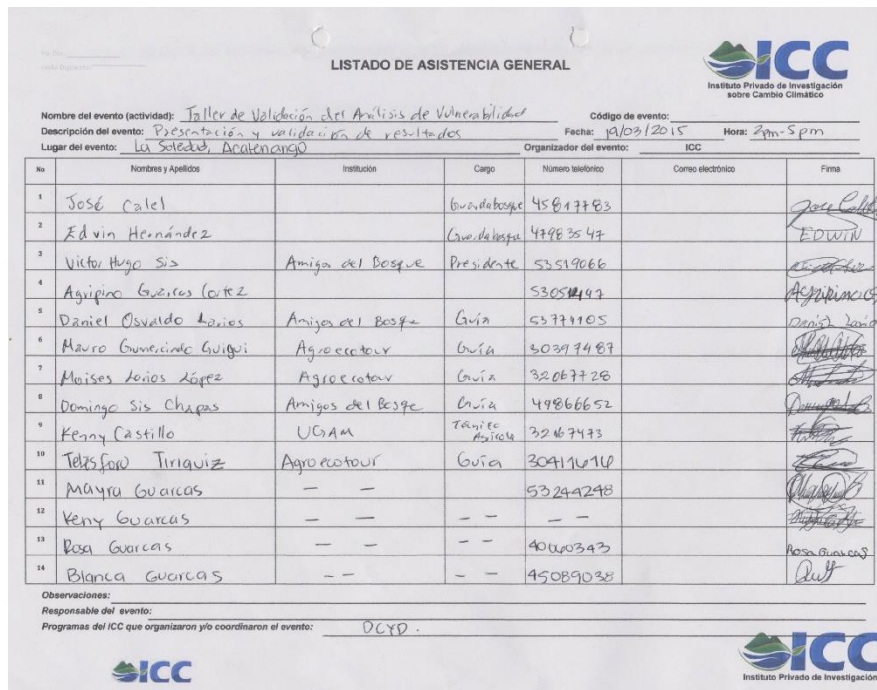 LISTADO DE ASISTENCIA GENERAL
ICC
Instituto Privado de Investigación
sobre Cambio Climático
Nombre del evento (actividad): Taller de Validación del Análisis de Vulnerabilidad Código de evento:
Descripción del evento: Presentación y validación de resultados Fecha: 19/03/2015 Hora: 2pm-5pm
Lugar del evento: La Soledad, Acatenango Organizador del evento: ICC
No Nombres y Apellidos Institución Cargo Número telefónico Correo electrónico Firma
1 José Calel Guardabosque 45817783
2 Edvin Hernández Guardabosque 47983547 EDWIN
3 Victor Hugo Sis Amigos del Bosque Presidente 53519066
4 Agripino Cortez
5 Daniel Osvaldo Larios Amigos del Bosque Guía 53771105
6 Mauro Gumercindo Guigui Agroecotour Guía 30397487
7 Moises Larios López Agroecotour Guía 32067728
8 Domingo Sis Chapas Amigos del Bosqe Guía 49866652
9 Kenny Castillo UGAM Técnico Agrícola 32167473
10 Telesforo Tiriquiz Agroecotour Guía 30411616
11 Mayra Guarcas — — 53244248
12 Keny Guarcas — — — — — —
13 Rosa Guarcas — — — — 40060343 Rosa Guarcas
14 Blanca Guarcas — — — — 45089038
Observaciones:
Responsable del evento:
Programas del ICC que organizaron y/o coordinaron el evento: DCYD.
ICC
ICC
Instituto Privado de Investigación